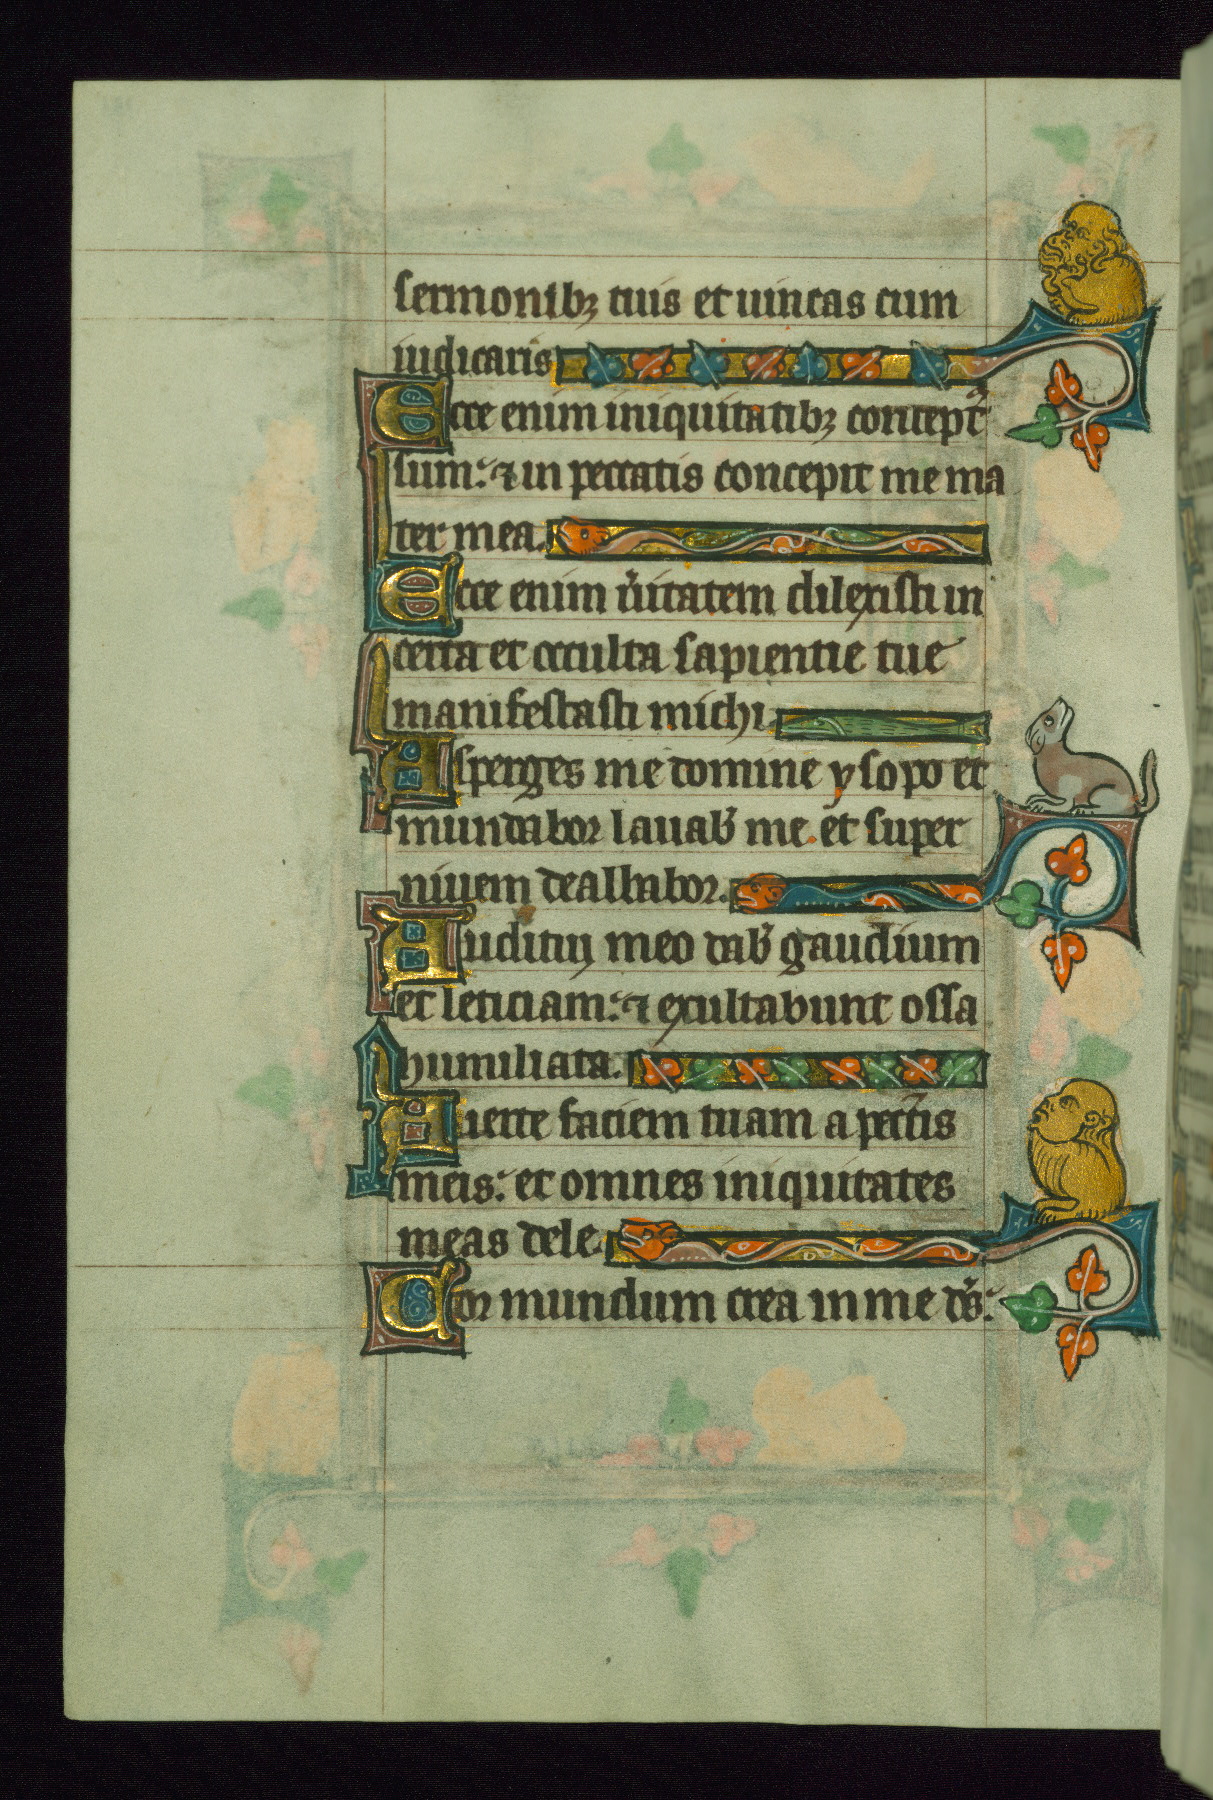 sermonibꝫ tuis et uincas cum
iudicaris
Ecce enim iniquitatibꝫ concept᷒
sum: ⁊ in peccatis concepit me ma
ter mea.
Ecce enim u̓itatem dilexisti in
certa et occulta sapientie tue
manifestasti michi.
Asperges me domine ysopo et
mundabor lauab̓ me et super
niuem dealbabor.
Auditui meo dab̓ gaudium
et leticiam: ⁊ exultabunt ossa
humiliata.
Auerte faciem tuam a pecc̄is
meis: et omnes iniquitates
meas dele.
Cor mundum crea in me d̓s: